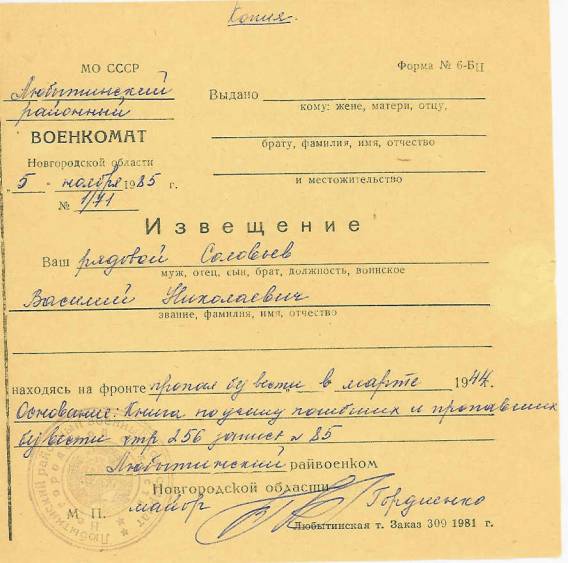 Копия.
МО СССР
Форма № 6-БН
Любытинский
районный
ВОЕНКОМАТ
Новгородской области
"5" ноября 1985 г.
№ 1/71
Выдано
кому: жене, матери, отцу,
брату, фамилия, имя, отчество
и местожительство
Извещение
Ваш рядовой Соловьев
муж, отец, сын, брат, должность, воинское
Василий Николаевич
звание, фамилия, имя, отчество
находясь на фронте пропал без вести в марте 1944.
Основание: Книга по учету погибших и пропавших
без вести стр 256 запись № 85
Любытинский райвоенком
Новгородской области
М. П. майор Гордиенко
Любытинская т. Заказ 309 1981 г.